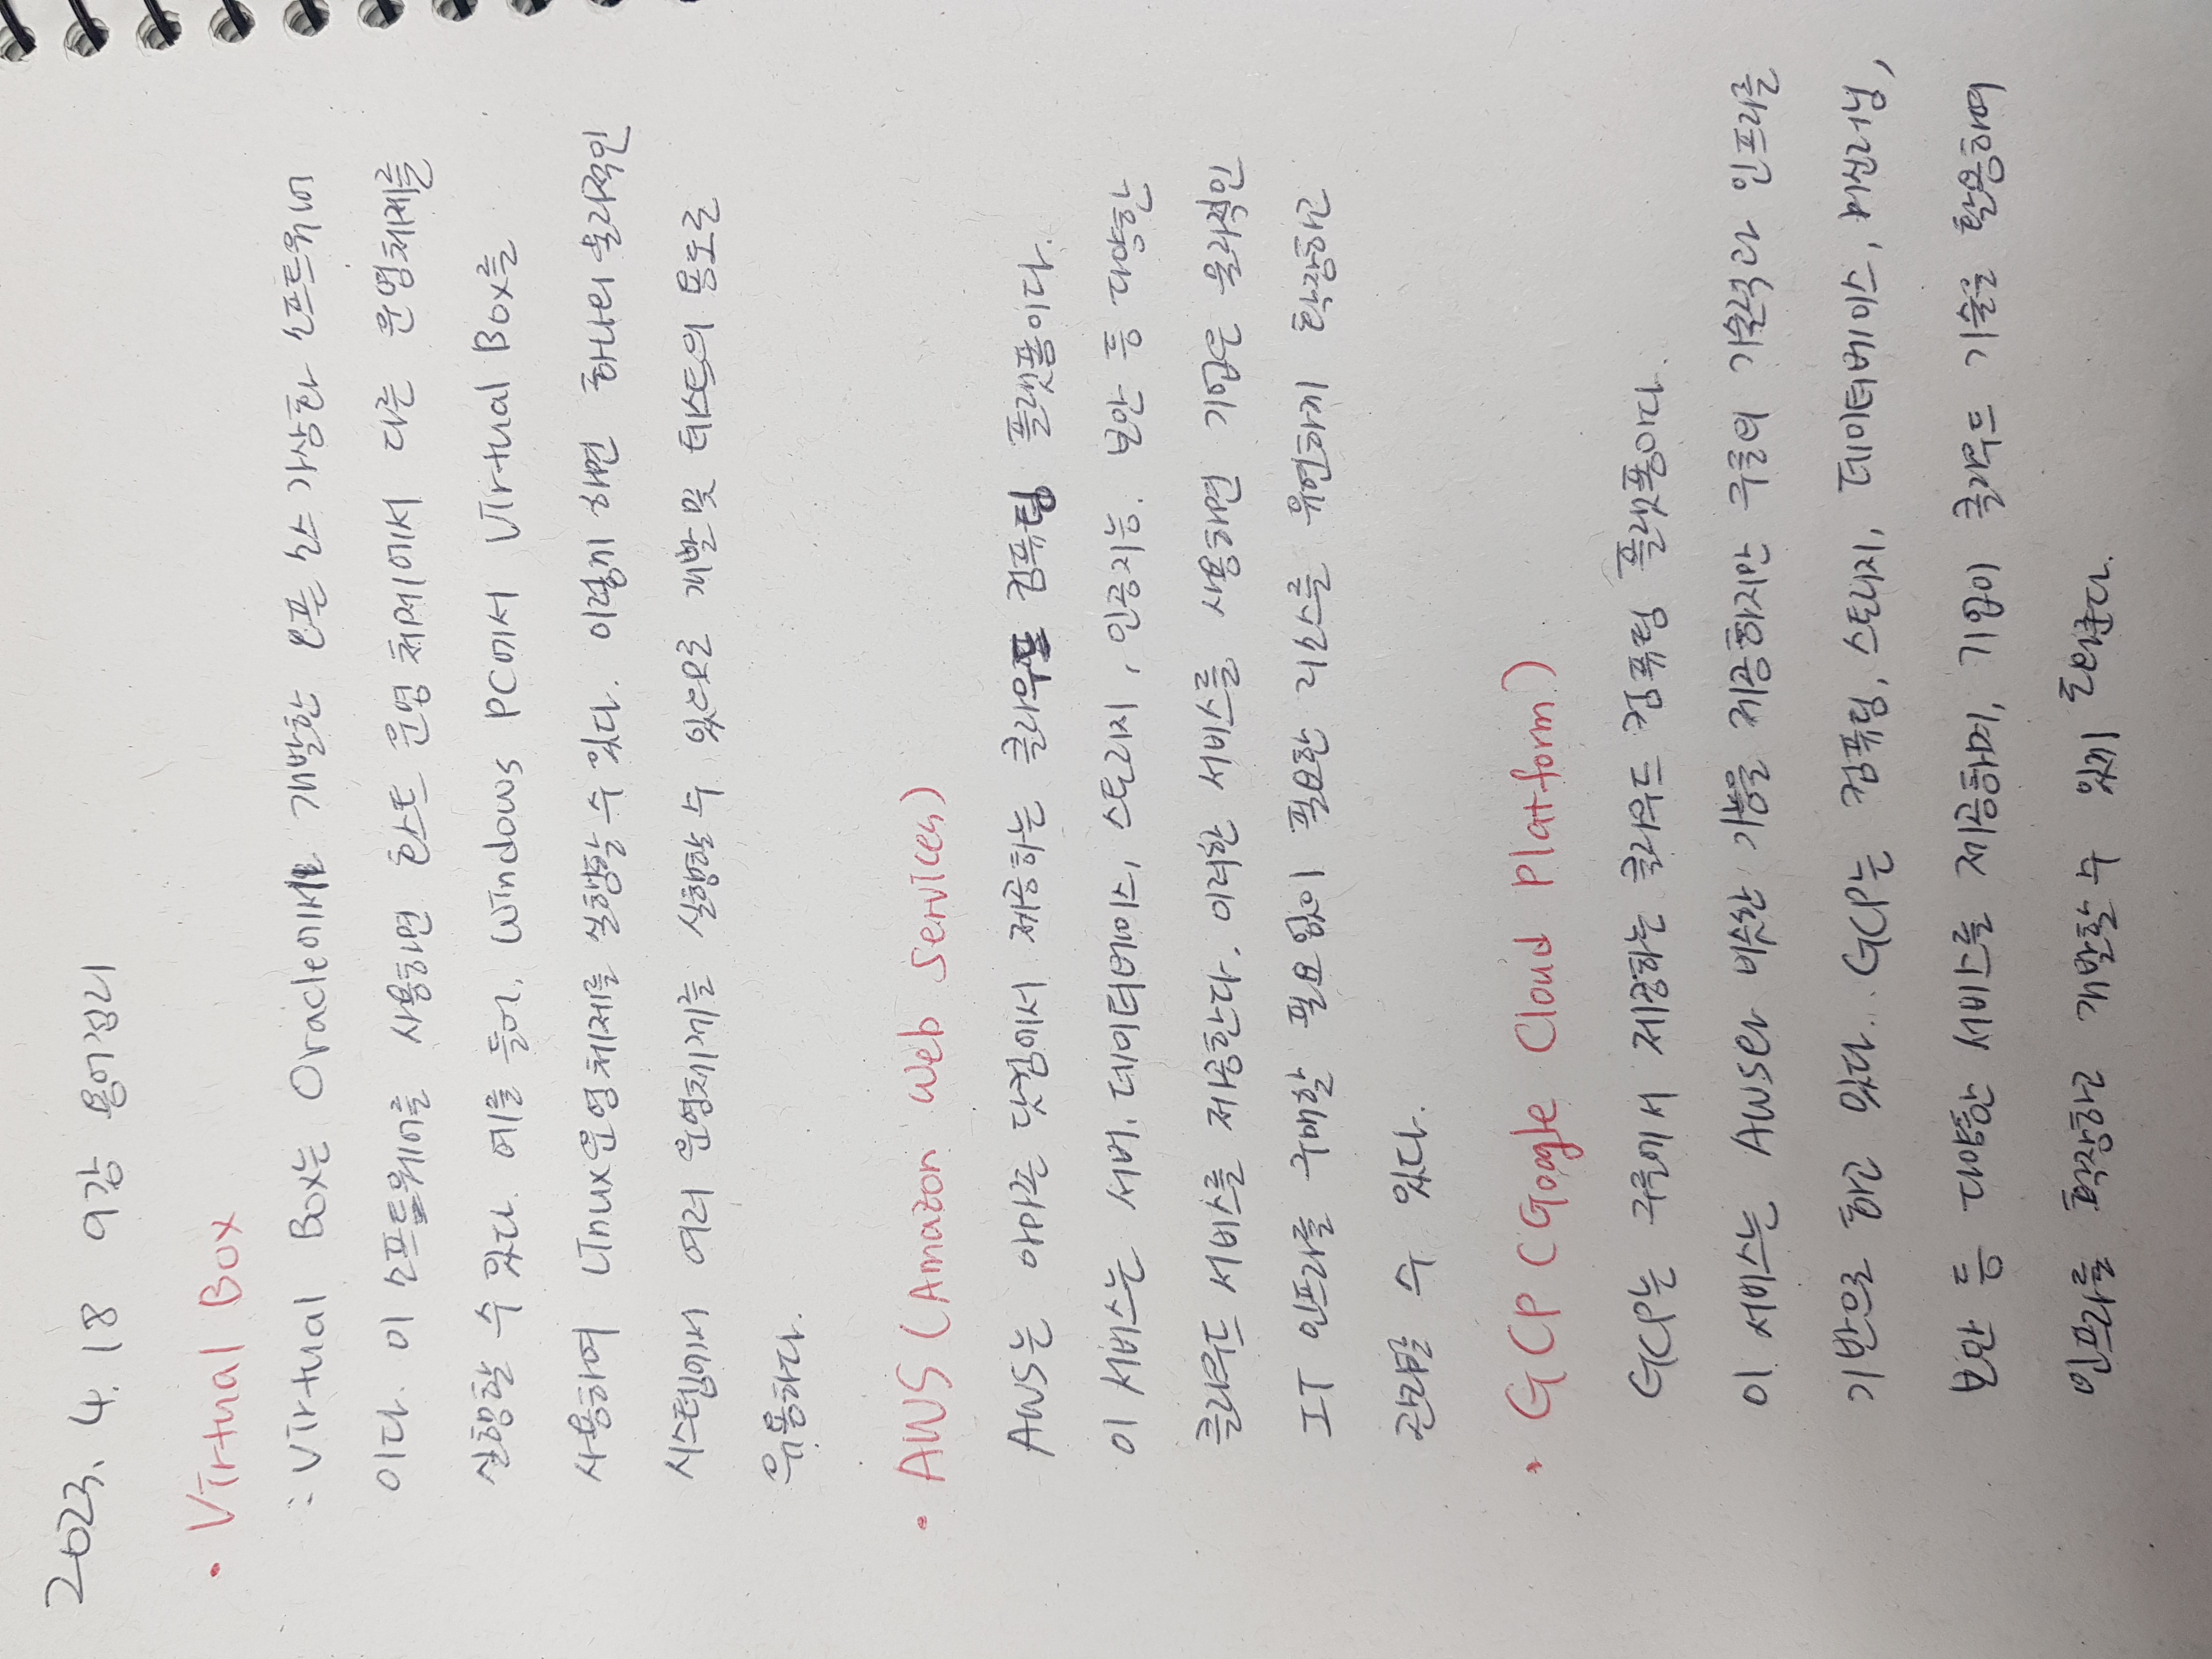 2023. 4. 18 9강 용어정리
• Virtual Box
: Virtual Box는 Oracle에서 개발한 오픈 소스 가상화 소프트웨어
이다. 이 소프트웨어를 사용하면 호스트 운영 체제에서 다른 운영체제를
실행할 수 있다. 예를 들어, Windows PC에서 Virtual Box를
사용하여 Linux운영체제를 실행할 수 있다. 이렇게 하면 하나의 물리적인
시스템에서 여러 운영체제를 실행할 수 있으므로 개발 및 테스트의 용도로
유용하다.
• AWS (Amazon Web Services)
AWS는 아마존 닷컴에서 제공하는 클라우드 컴퓨팅 플랫폼이다.
이 서비스는 서버, 데이터베이스, 스토리지, 인공지능, 보안 등 다양한
클라우드 서비스를 제공한다. 이러한 서비스를 사용하면 기업은 물리적인
IT 인프라를 구매할 필요없이 필요한 리소스를 유연하게 확장하고
관리할 수 있다.
• GCP (Google Cloud Platform)
GCP는 구글에서 제공하는 클라우드 컴퓨팅 플랫폼이다.
이 서비스는 AWS와 비슷한 기능을 제공하지만 구글의 기술력과 인프라를
기반으로 하고 있다. GCP는 컴퓨팅, 스토리지, 데이터베이스, 머신러닝,
보안 등 다양한 서비스를 제공하며, 기업이 클라우드 기술을 활용하여
인프라를 확장하고 개발할 수 있게 도와준다.